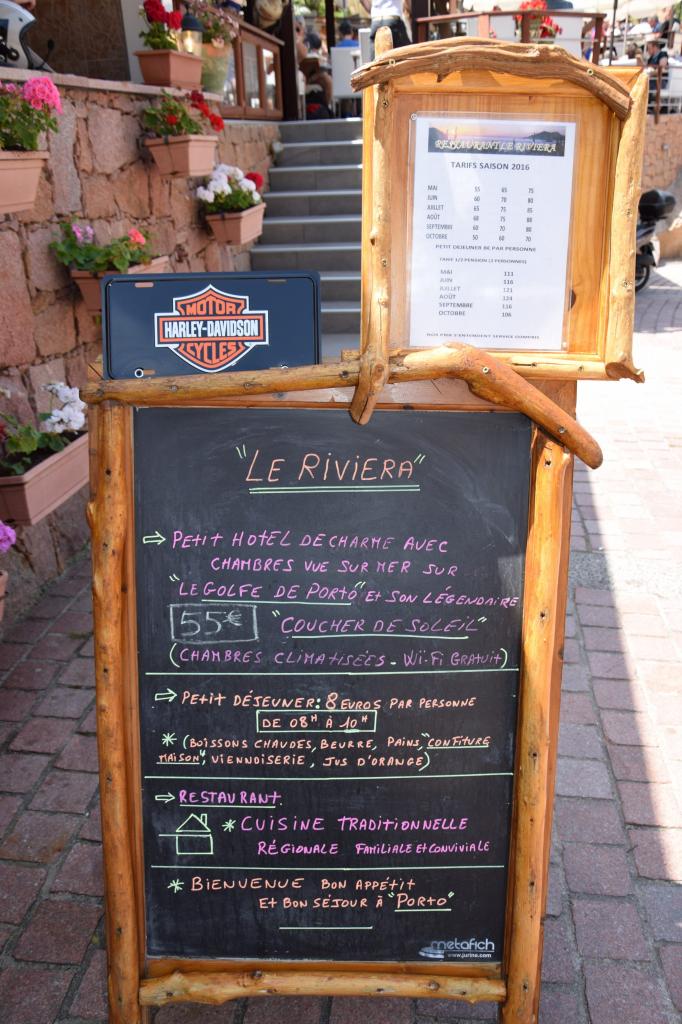 RESTAURANT LE RIVIERA
TARIFS SAISON 2016
MAI 55 65 75
JUIN 60 70 80
JUILLET 65 75 85
AOÛT 60 75 80
SEPTEMBRE 60 70 80
OCTOBRE 50 60 70
PETIT DEJEUNER 8€ PAR PERSONNE
TARIF 1/2 PENSION (2 PERSONNES)
MAI 111
JUIN 116
JUILLET 121
AOÛT 124
SEPTEMBRE 116
OCTOBRE 106
NOS PRIX S'ENTENDENT SERVICE COMPRIS
MOTOR
HARLEY-DAVIDSON
CYCLES
"LE RIVIERA"
⇒ PETIT HOTEL DE CHARME AVEC
CHAMBRES VUE SUR MER SUR
"LE GOLFE DE PORTO" ET SON LÉGENDAIRE
55€ "COUCHER DE SOLEIL"
(CHAMBRES CLIMATISÉES - Wi-Fi GRATUIT)
⇒ PETIT DÉJEUNER: 8 EUROS PAR PERSONNE
DE 08H À 10H
* (BOISSONS CHAUDES, BEURRE, PAINS, "CONFITURE
MAISON", VIENNOISERIE, JUS D'ORANGE)
⇒ RESTAURANT
* CUISINE TRADITIONNELLE
RÉGIONALE FAMILIALE ET CONVIVIALE
* BIENVENUE BON APPÉTIT
ET BON SÉJOUR À "PORTO"
metafich
www.jurine.com